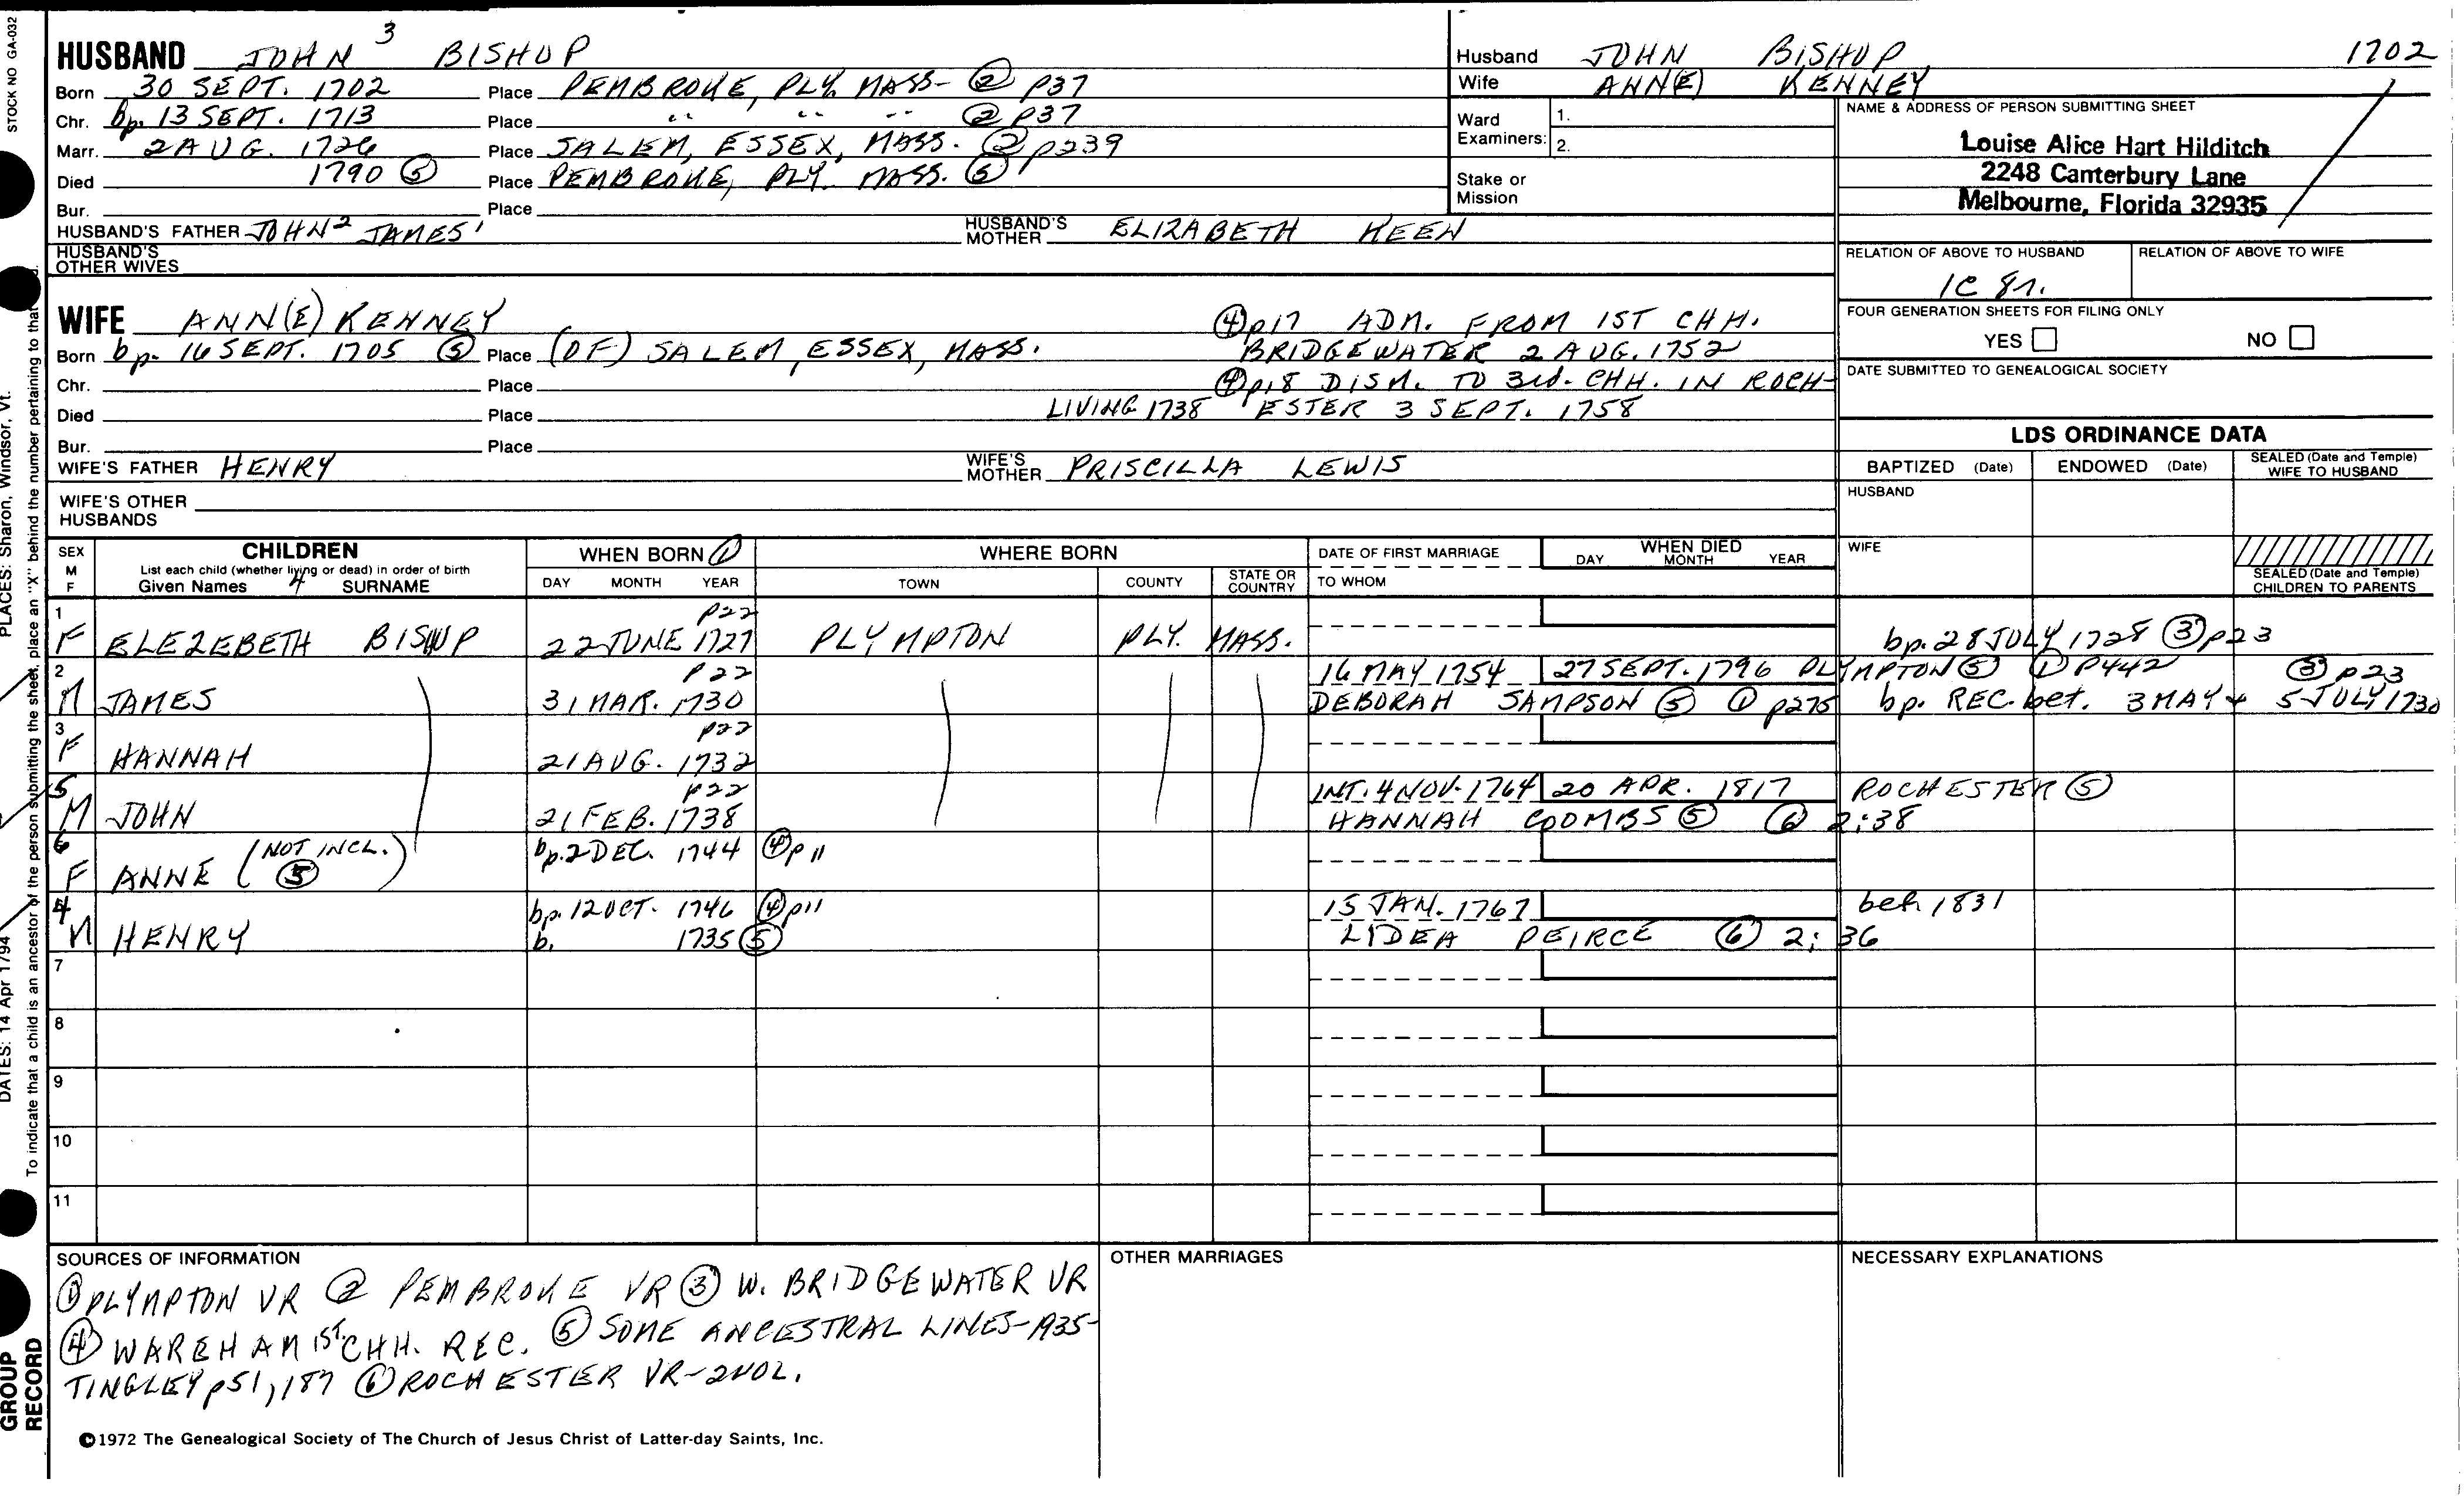 STOCK NO GA-032
HUSBAND JOHN 3 BISHOP
Born 30 SEPT. 1702 Place PEMBROKE, PLY. MASS- ② P37
Chr. bp. 13 SEPT. 1713 Place " " " ② P37
Marr. 2 AUG. 1726 Place SALEM, ESSEX, MASS. ② p239
Died 1790 ⑤ Place PEMBROKE, PLY. MASS. ⑤
Bur. Place
HUSBAND'S FATHER JOHN2 JAMES1 HUSBAND'S MOTHER ELIZABETH KEEN
HUSBAND'S OTHER WIVES
Husband JOHN BISHOP 1702
Wife ANN(E) KENNEY
Ward Examiners: 1. 2.
Stake or Mission
NAME & ADDRESS OF PERSON SUBMITTING SHEET
Louise Alice Hart Hilditch
2248 Canterbury Lane
Melbourne, Florida 32935
RELATION OF ABOVE TO HUSBAND RELATION OF ABOVE TO WIFE
1C 8r.
FOUR GENERATION SHEETS FOR FILING ONLY
YES NO
DATE SUBMITTED TO GENEALOGICAL SOCIETY
WIFE ANN(E) KENNEY ④p17 ADM. FROM 1ST CHH.
Born bp. 16 SEPT. 1705 ⑤ Place (OF) SALEM, ESSEX, MASS. BRIDGEWATER 2 AUG. 1752
Chr. Place ④p18 DISM. TO 3rd. CHH. IN ROCH-
Died Place LIVING 1738 ESTER 3 SEPT. 1758
Bur. Place
WIFE'S FATHER HENRY WIFE'S MOTHER PRISCILLA LEWIS
WIFE'S OTHER HUSBANDS
LDS ORDINANCE DATA
BAPTIZED (Date) ENDOWED (Date) SEALED (Date and Temple) WIFE TO HUSBAND
HUSBAND
WIFE
SEALED (Date and Temple) CHILDREN TO PARENTS
SEX M F
CHILDREN
List each child (whether living or dead) in order of birth
Given Names 4 SURNAME
WHEN BORN ①
DAY MONTH YEAR
WHERE BORN
TOWN COUNTY STATE OR COUNTRY
DATE OF FIRST MARRIAGE
TO WHOM
WHEN DIED
DAY MONTH YEAR
1 p22
F ELEZEBETH BISHUP 22 JUNE 1727 PLYMPTON PLY. MASS. bp. 28 JULY 1728 ③p23
2 P22 16 MAY 1754 27 SEPT. 1796 PLYMPTON ⑤ ① P442 ③ p23
M JAMES 31 MAR. 1730 DEBORAH SAMPSON ⑤ ① p275 bp. REC. bet. 3 MAY + 5 JULY 1730
3 p22
F HANNAH 21 AUG. 1732
5 p22 INT. 4 NOV. 1764 20 APR. 1817 ROCHESTER ⑤
M JOHN 21 FEB. 1738 HANNAH COOMBS ⑤ ⑥ 2:38
6 (NOT INCL. ⑤) bp. 2 DEC. 1744 ④p11
F ANNE
4 bp. 12 OCT. 1746 ④p11 15 JAN. 1767 bef. 1831
M HENRY b. 1735 ⑤ LIDEA PEIRCE ⑥ 2:36
7
8
9
10
11
SOURCES OF INFORMATION
①PLYMPTON VR ② PEMBROKE VR ③ W. BRIDGEWATER VR
④ WAREHAM 1ST. CHH. REC. ⑤ SOME ANCESTRAL LINES-1935-
TINGLEY p51, 187 ⑥ ROCHESTER VR-2VOL.
OTHER MARRIAGES
NECESSARY EXPLANATIONS
©1972 The Genealogical Society of The Church of Jesus Christ of Latter-day Saints, Inc.
PLACES: Sharon, Windsor, Vt.
DATES: 14 Apr 1794
To indicate that a child is an ancestor of the person submitting the sheet, place an "X" behind the number pertaining to that
GROUP
RECORD